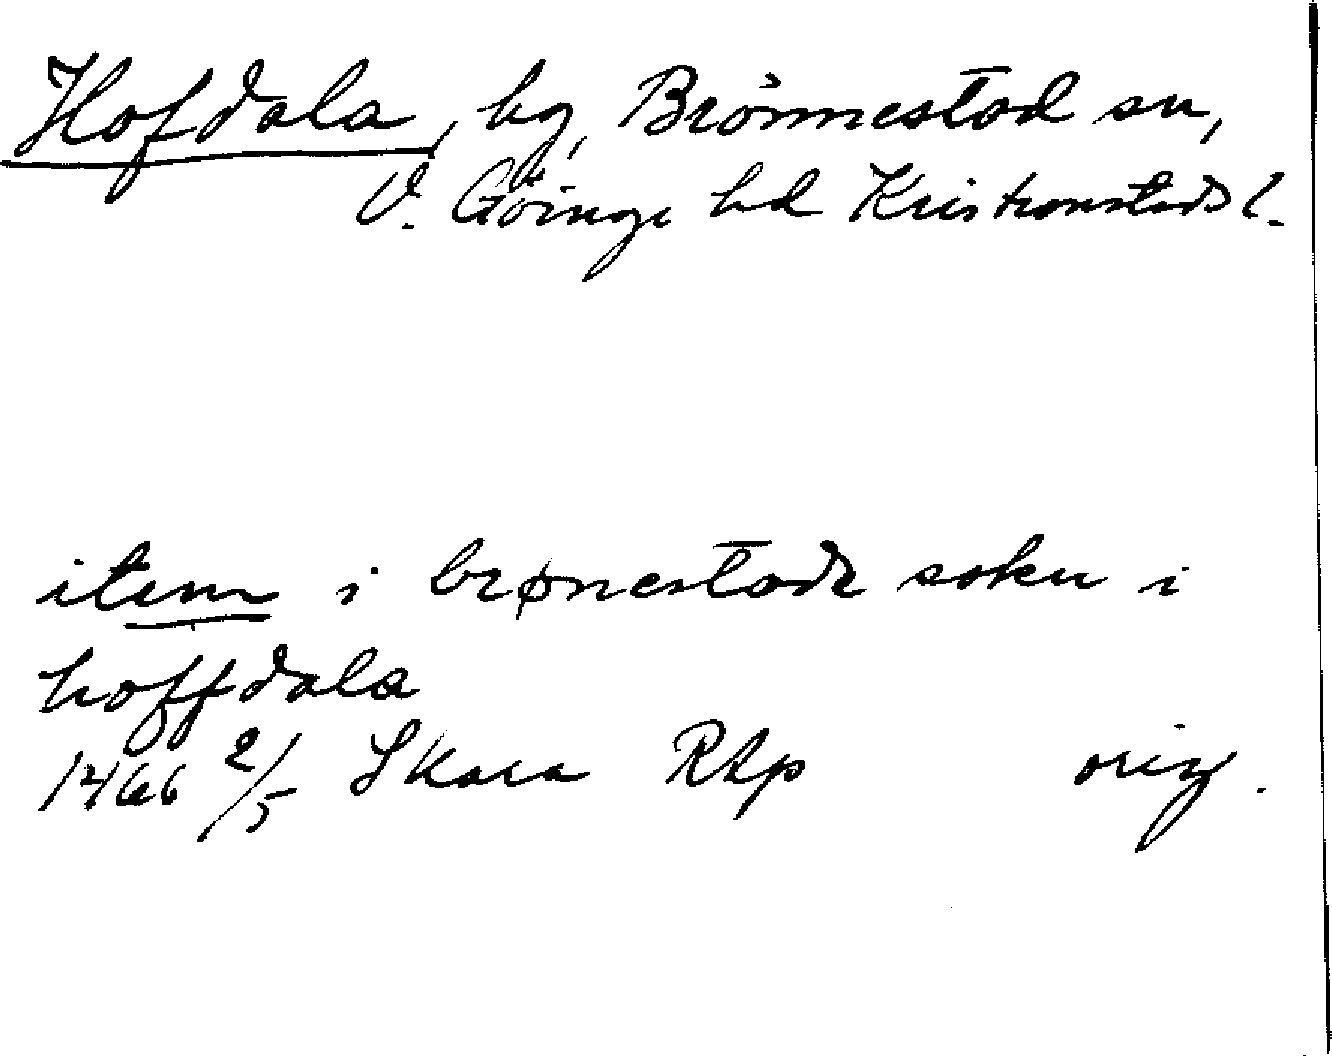 Hofdala, by, Brönnestad sn,
V. Göinge hd Kristianstads l.
item i brønestade sokn i
hoffdala
1466 2/5 Skara RAp orig.